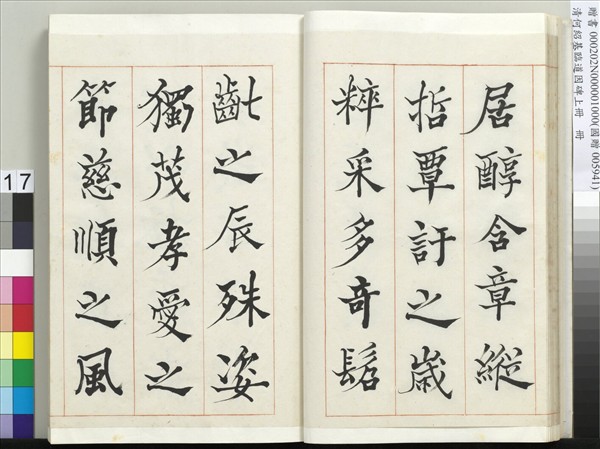 居醇含章縱
哲覃訏之歲
粹采多奇髫
齔之辰殊姿
獨茂孝愛之
節慈順之風
贈書 000202N000001000(國贈 005941)
清何紹基臨道因碑上冊 冊
17